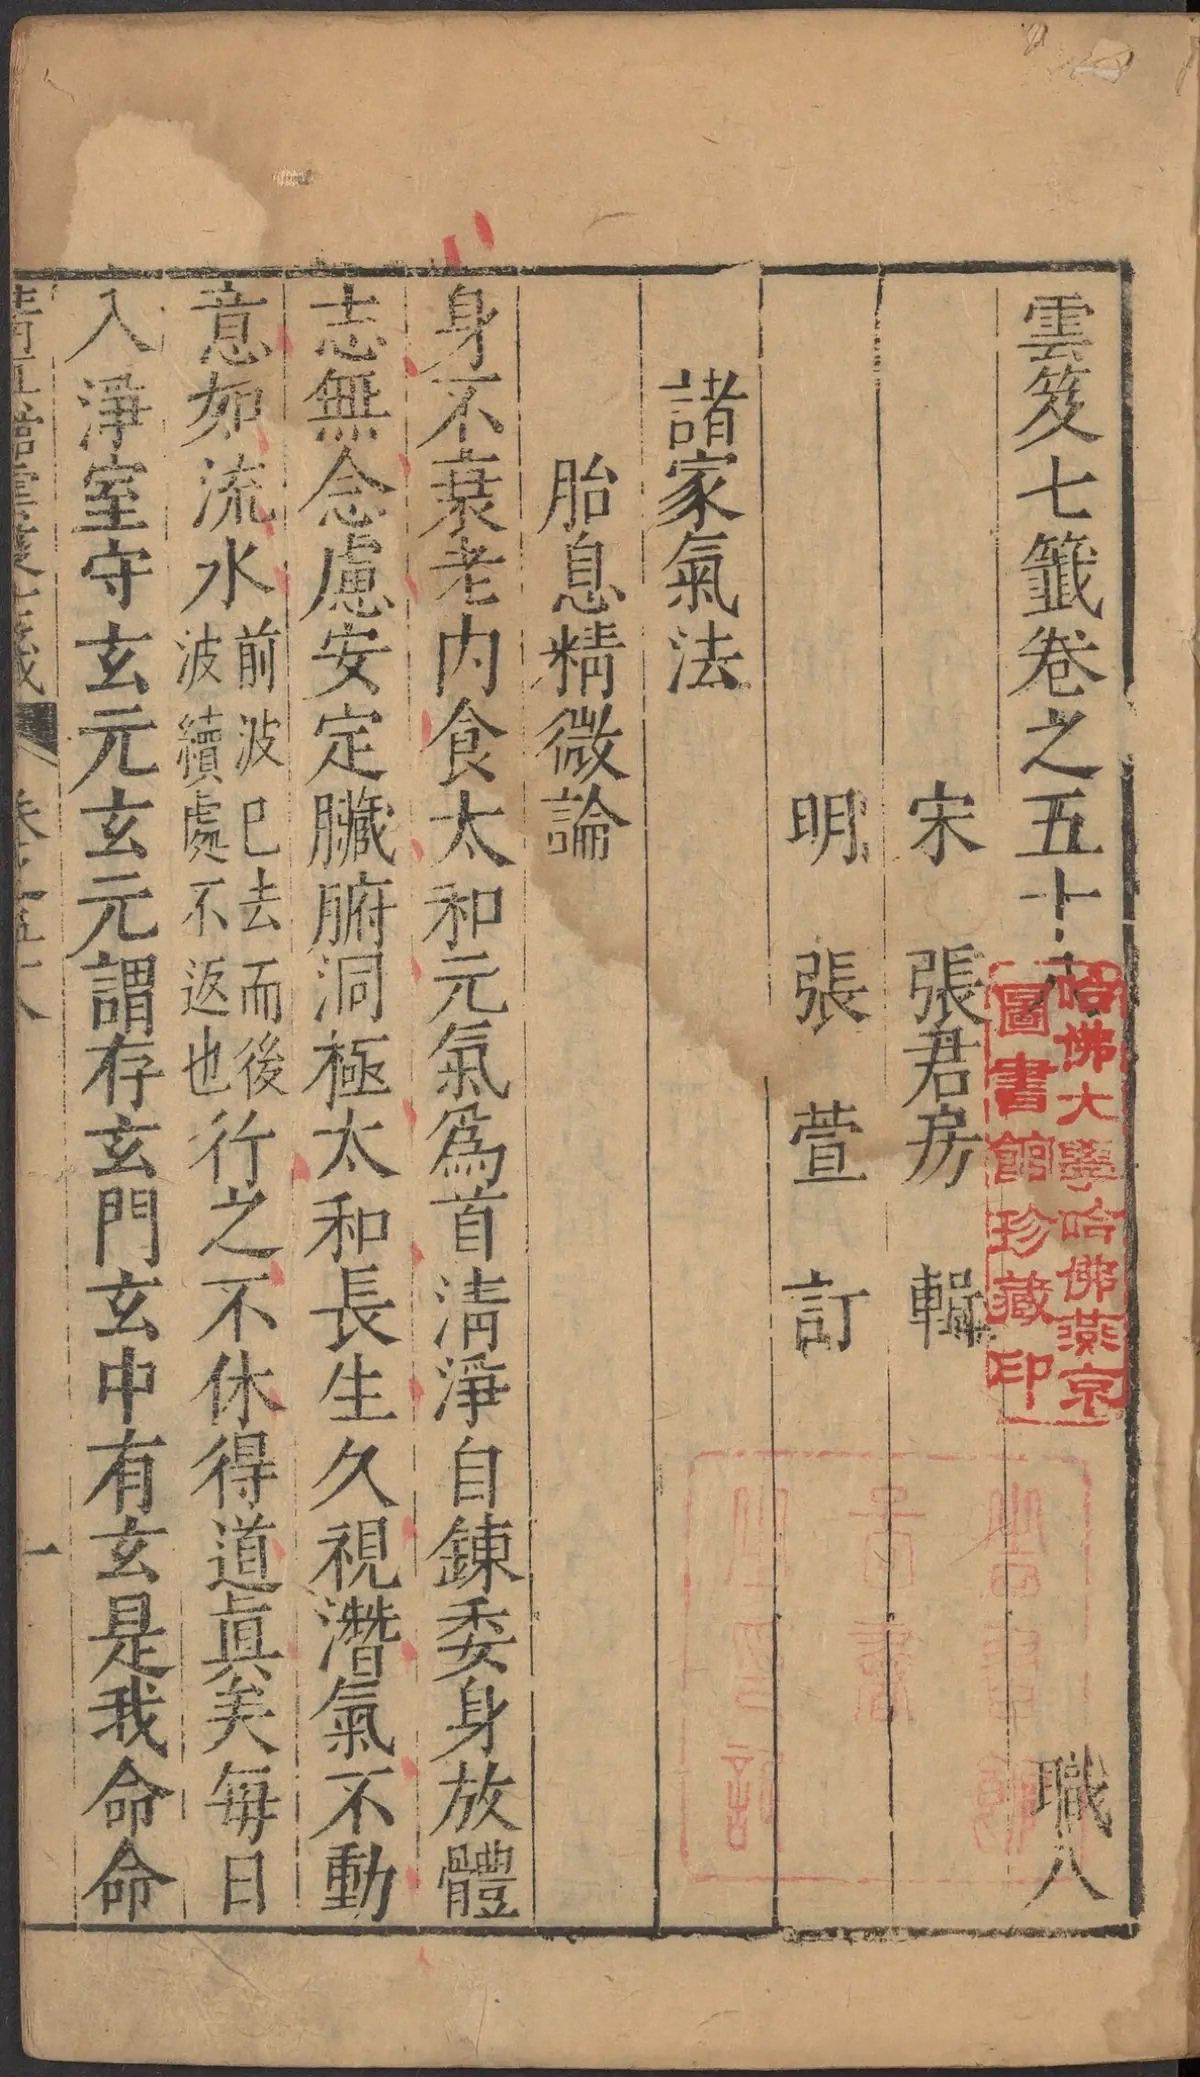 雲笈七籤卷之五十八 職八
宋 張君房 輯
明 張萱 訂
諸家氣法
胎息精微論
身不衰老內食太和元氣爲首淸淨自鍊委身放體
志無念慮安定臟腑洞極太和長生久視潛氣不動
意如流水前波已去而後波續處不返也行之不休得道眞矣每日
入淨室守玄元玄元謂存玄門玄中有玄是我命命
卷之五十八
一
哈佛大學哈佛燕京
圖書館珍藏印